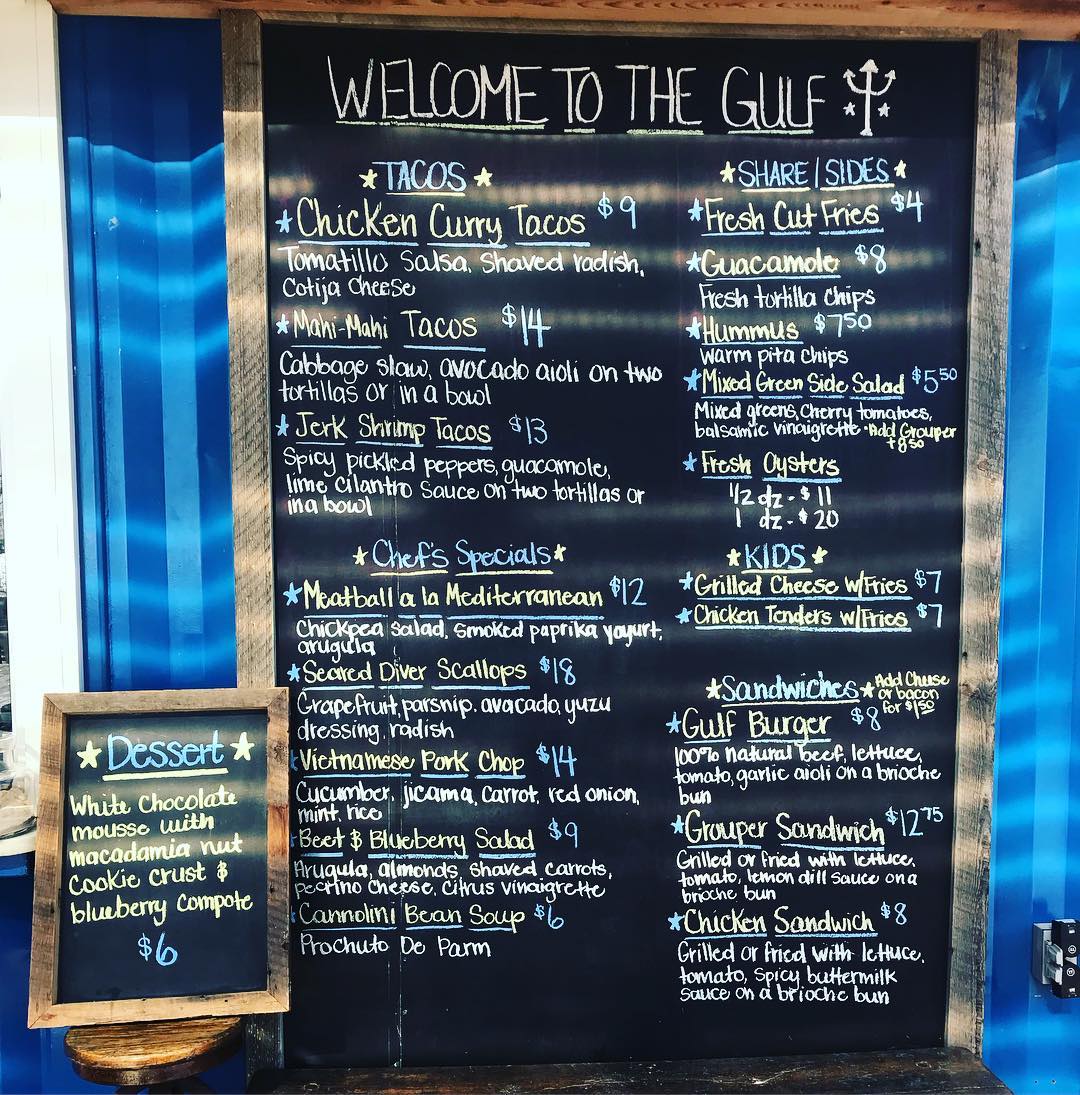 WELCOME TO THE GULF
TACOS
Chicken Curry Tacos $9
Tomatillo Salsa, Shaved radish,
Cotija Cheese
Mahi-Mahi Tacos $14
Cabbage slaw, avocado aioli on two
tortillas or in a bowl
Jerk Shrimp Tacos $13
Spicy pickled peppers, guacamole,
lime cilantro sauce on two tortillas or
in a bowl
Chef's Specials
Meatball a la Mediterranean $12
Chickpea salad, smoked paprika yogurt,
arugula
Seared Diver Scallops $18
Grapefruit, parsnip, avacado, yuzu
dressing, radish
Vietnamese Pork Chop $14
Cucumber, jicama, carrot, red onion,
mint, rice
Beet & Blueberry Salad $9
Arugula, almonds, shaved carrots,
pecorino cheese, citrus vinaigrette
Cannolini Bean Soup $6
Prochuto De Parm
SHARE/SIDES
Fresh Cut Fries $4
Guacamole $8
Fresh tortilla chips
Hummus $750
Warm pita chips
Mixed Green Side Salad $550
Mixed greens, Cherry tomatoes,
balsamic vinaigrette *Add Grouper
+850
Fresh Oysters
1/2 dz - $11
1 dz - $20
KIDS
Grilled Cheese w/Fries $7
Chicken Tenders w/Fries $7
Sandwiches
Add Cheese
or bacon
for $150
Gulf Burger $8
100% natural beef, lettuce,
tomato, garlic aioli on a brioche
bun
Grouper Sandwich $1275
Grilled or fried with lettuce,
tomato, lemon dill sauce on a
brioche bun
Chicken Sandwich $8
Grilled or fried with lettuce,
tomato, spicy buttermilk
sauce on a brioche bun
Dessert
White Chocolate
mousse with
macadamia nut
Cookie crust &
blueberry compote
$6